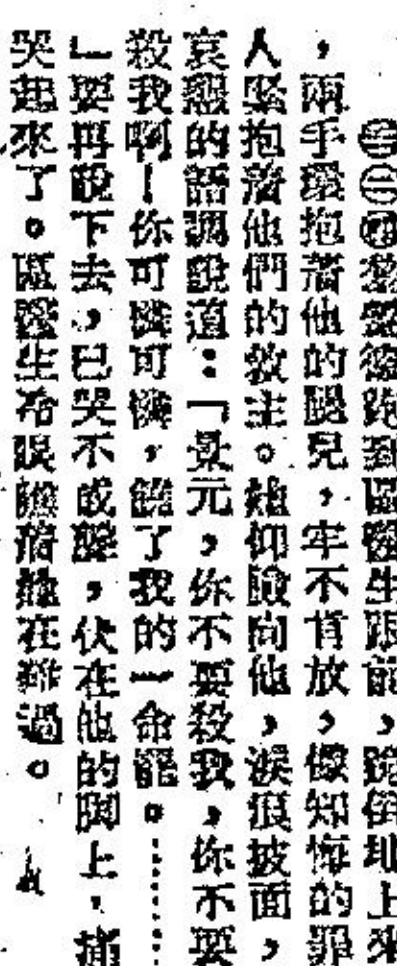 ㊂㊀㊃黎緊後跑到區醫生跟前，跪倒地上來
，兩手環抱着他的腿兒，牢不肯放，像知悔的罪
人緊抱着他們的救主。她仰臉向他，淚痕披面，
哀懇的語調說道：「景元，你不要殺我，你不要
殺我啊！你可憐可憐，饒了我的一命罷。……
」要再說下去，已哭不成聲，伏在他的脚上，痛
哭起來了。區醫生冷眼瞧着她在難過。